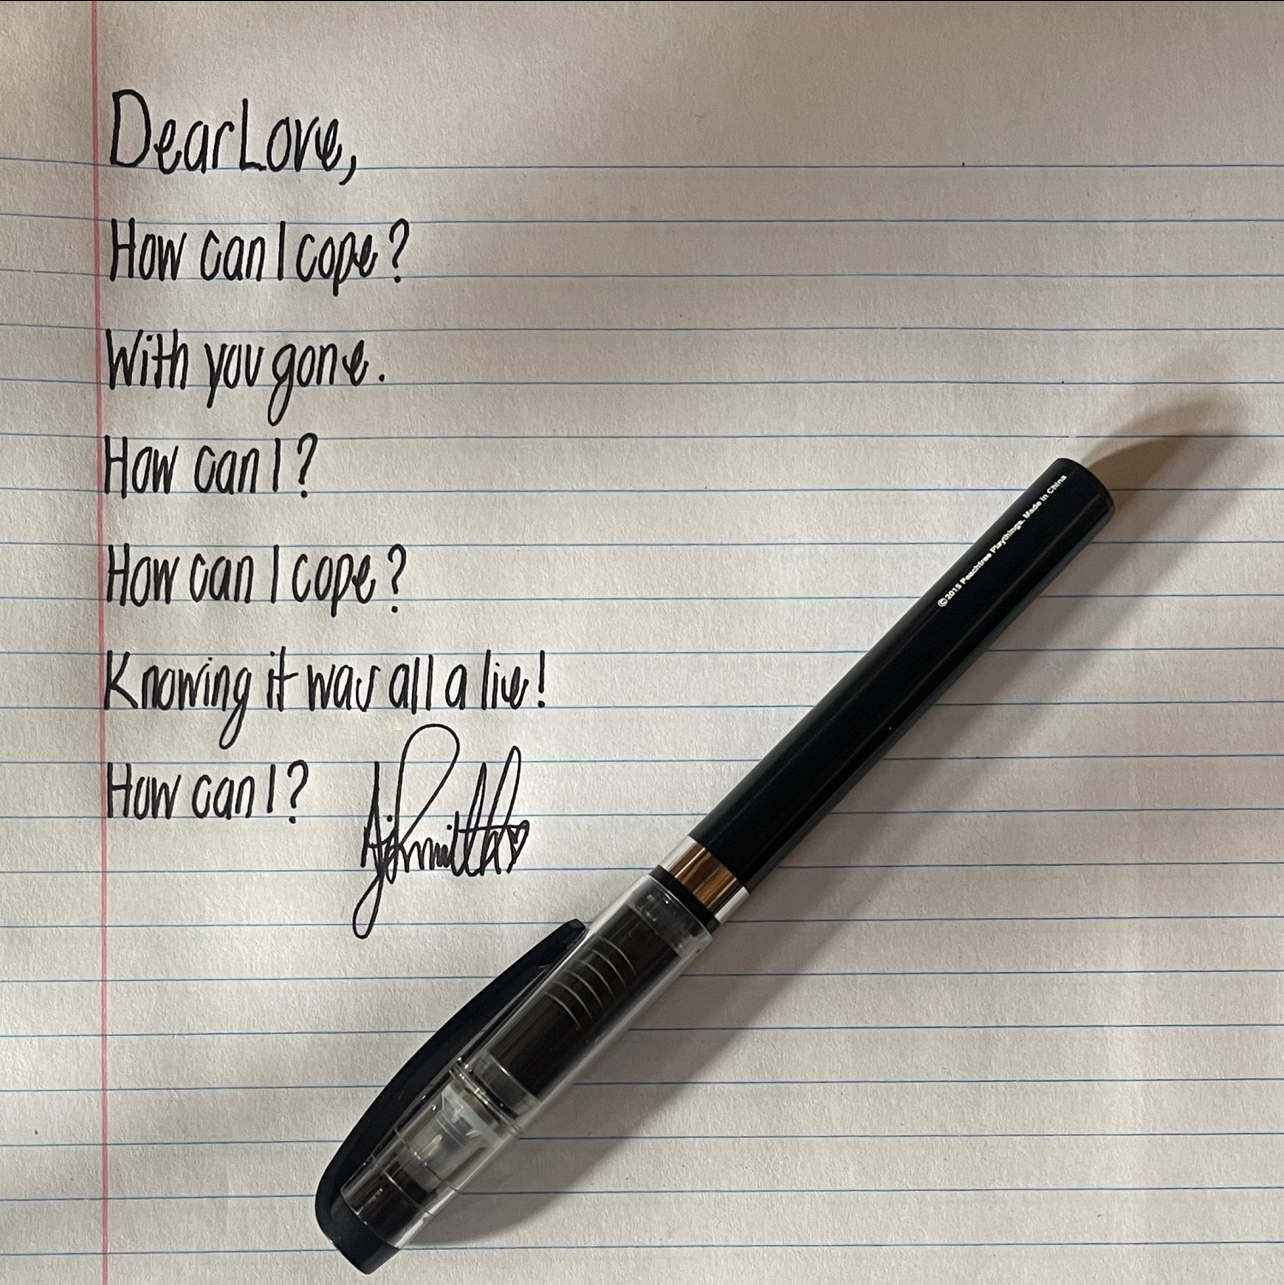 Dear Love,
How can I cope?
With you gone.
How can I?
How can I cope?
Knowing it was all a lie!
How can I?
©2015 Peachtree Playthings. Made in China